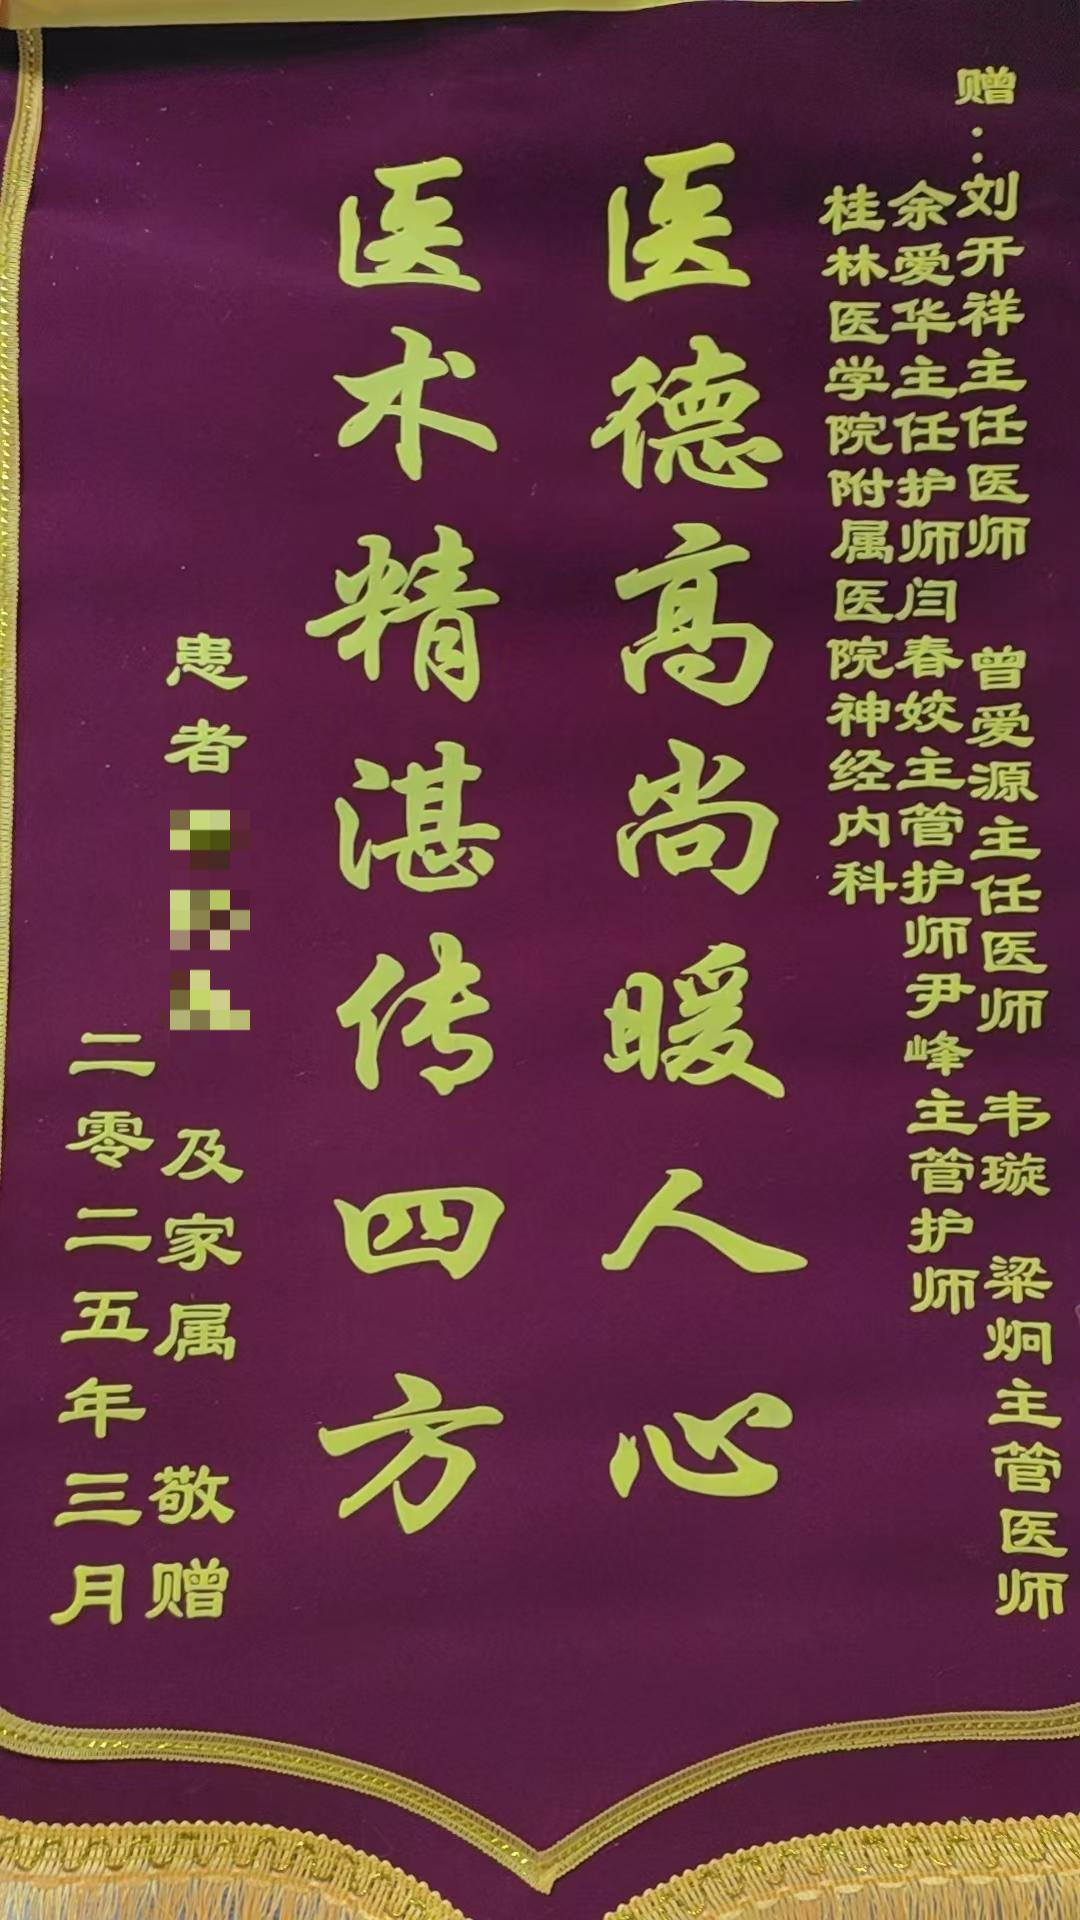 赠：刘开祥主任医师 曾爱源主任医师 韦璇 梁炯主管医师
余爱华主任护师闫春姣主管护师尹峰主管护师
桂林医学院附属医院神经内科
医德高尚暖人心
医术精湛传四方
患者 及家属 敬赠
二零二五年三月